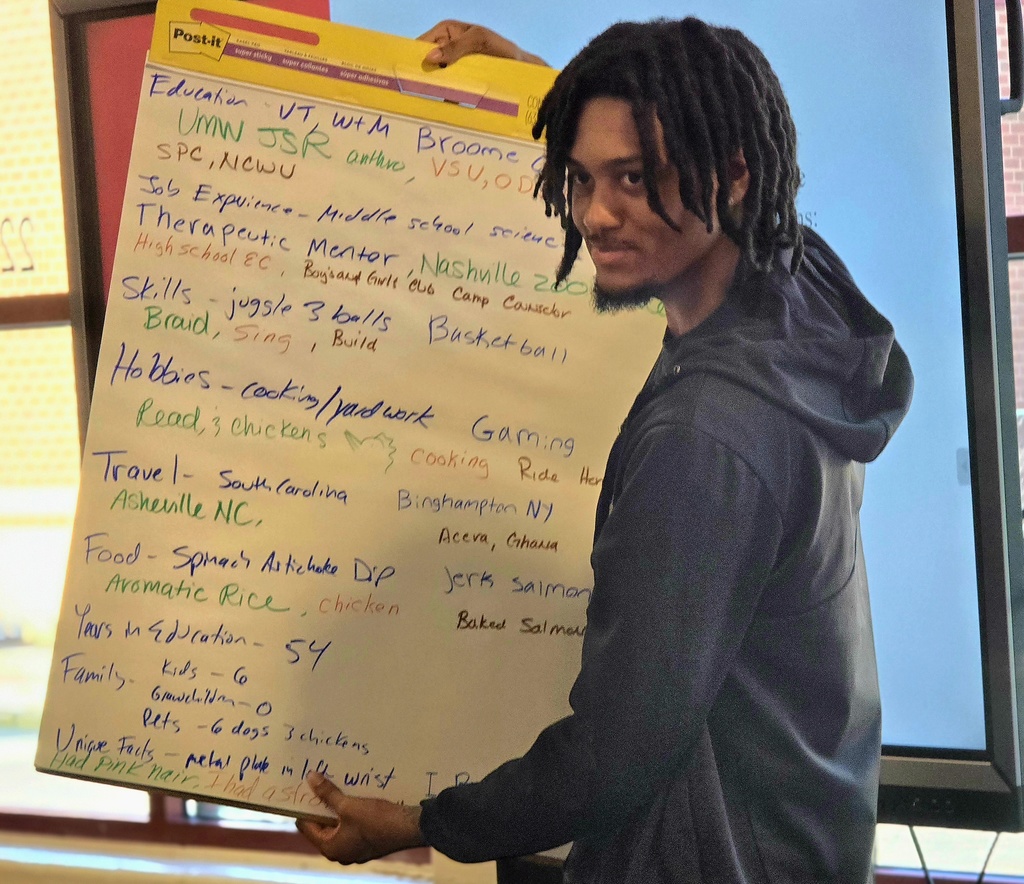 Post-it
super sticky super collantes súper adhesivas
Education - VT, W+M Broome
UMW JSR anthro, VSU, OD
SPC, NCWU
Job Experience - Middle school scienc
Therapeutic Mentor, Nashville zoo
High school EC, Boys and Girls Club Camp Counselor
Skills - juggle 3 balls Basketball
Braid, Sing, Build
Hobbies - cooking/yardwork Gaming
Read, & chickens cooking Ride Hor
Travel - South Carolina Binghampton NY
Asheville NC,
Accra, Ghana
Food - Spinach Artichoke Dip Jerk Salmon
Aromatic Rice, chicken
Baked Salmon
Years in Education - 54
Family - Kids - 6
Grandchildren - 0
Pets - 6 dogs 3 chickens
Unique Facts - metal plate in left wrist I
Had Pink hair, I had a stro
22